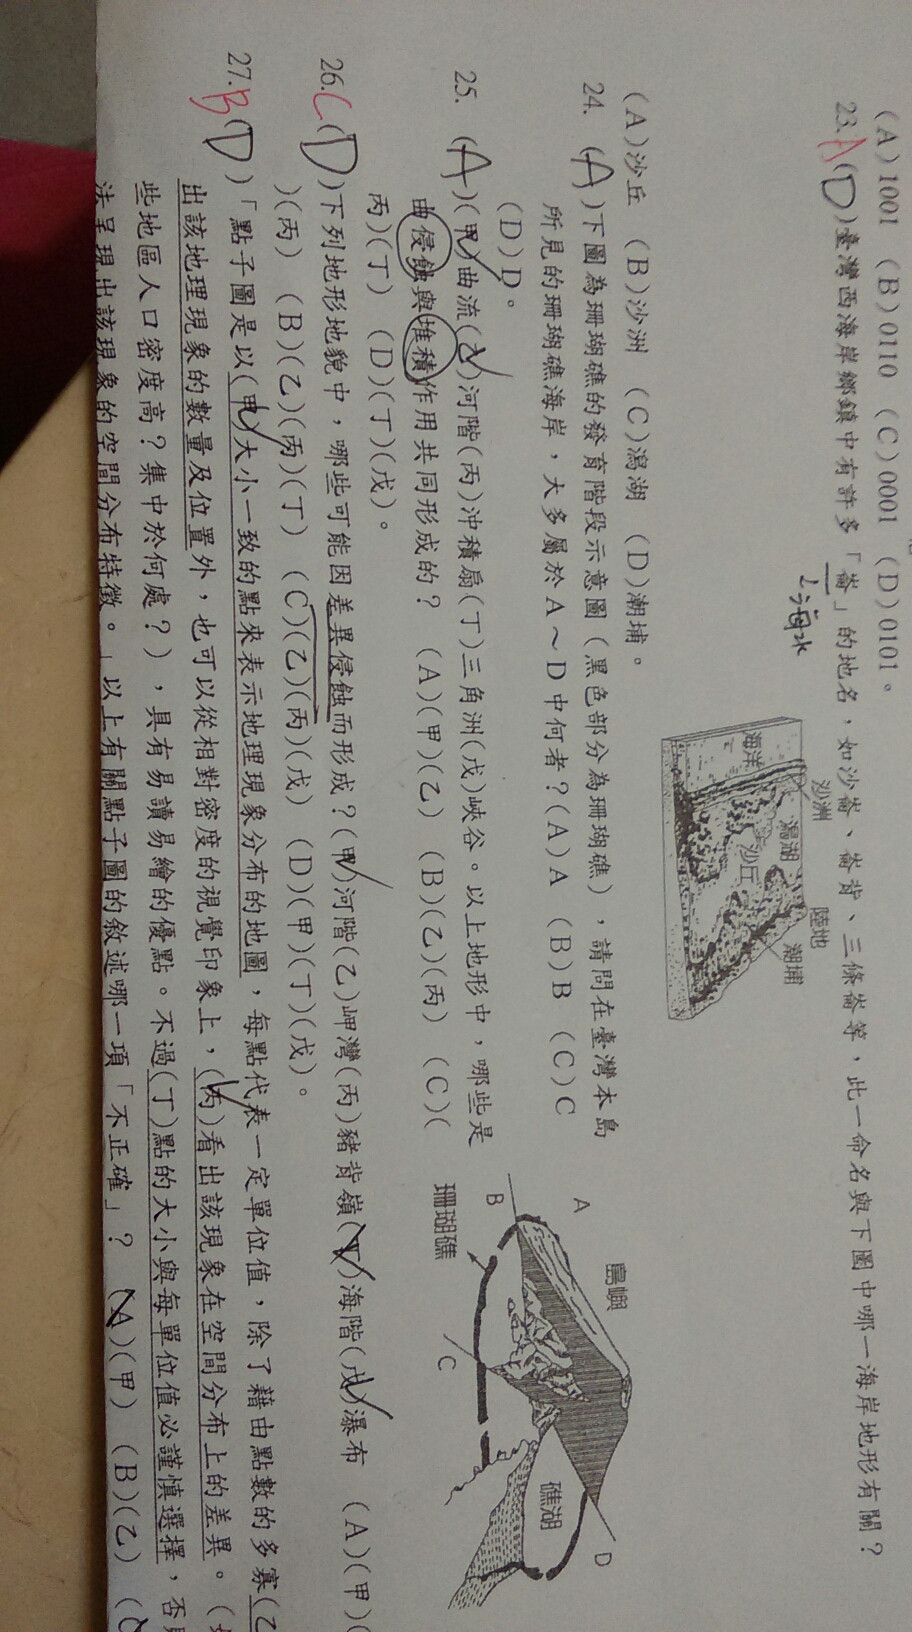 (A)1001 (B)0110 (C)0001 (D)0101。
23.A(D)臺灣西海岸鄉鎮中有許多「崙」的地名，如沙崙、崙背、三條崙等，此一命名與下圖中哪一海岸地形有關？
(A)沙丘 (B)沙洲 (C)潟湖 (D)潮埔。
海洋
沙洲
潟湖
沙丘
陸地
潮埔
24. (A)下圖為珊瑚礁的發育階段示意圖（黑色部分為珊瑚礁），請問在臺灣本島
所見的珊瑚礁海岸，大多屬於A～D中何者？(A)A (B)B (C)C
(D)D。
25. (A)(甲)曲流(乙)河階(丙)沖積扇(丁)三角洲(戊)峽谷。以上地形中，哪些是
由侵蝕與堆積作用共同形成的？ (A)(甲)(乙) (B)(乙)(丙) (C)(
丙)(丁) (D)(丁)(戊)。
A
島嶼
B
珊瑚礁
C
礁湖
D
26.C(D)下列地形地貌中，哪些可能因差異侵蝕而形成？(甲)河階(乙)岬灣(丙)豬背嶺(丁)海階(戊)瀑布 (A)(甲)(
)(丙) (B)(乙)(丙)(丁) (C)(乙)(丙)(戊) (D)(甲)(丁)(戊)。
27.B(D)「點子圖是以(甲)大小一致的點來表示地理現象分布的地圖，每點代表一定單位值，除了藉由點數的多寡(乙
出該地理現象的數量及位置外，也可以從相對密度的視覺印象上，(丙)看出該現象在空間分布上的差異。(
些地區人口密度高？集中於何處？)，具有易讀易繪的優點。不過(丁)點的大小與每單位值必謹慎選擇，否
法呈現出該現象的空間分布特徵。」以上有關點子圖的敘述哪一項「不正確」？ (A)(甲) (B)(乙) (C